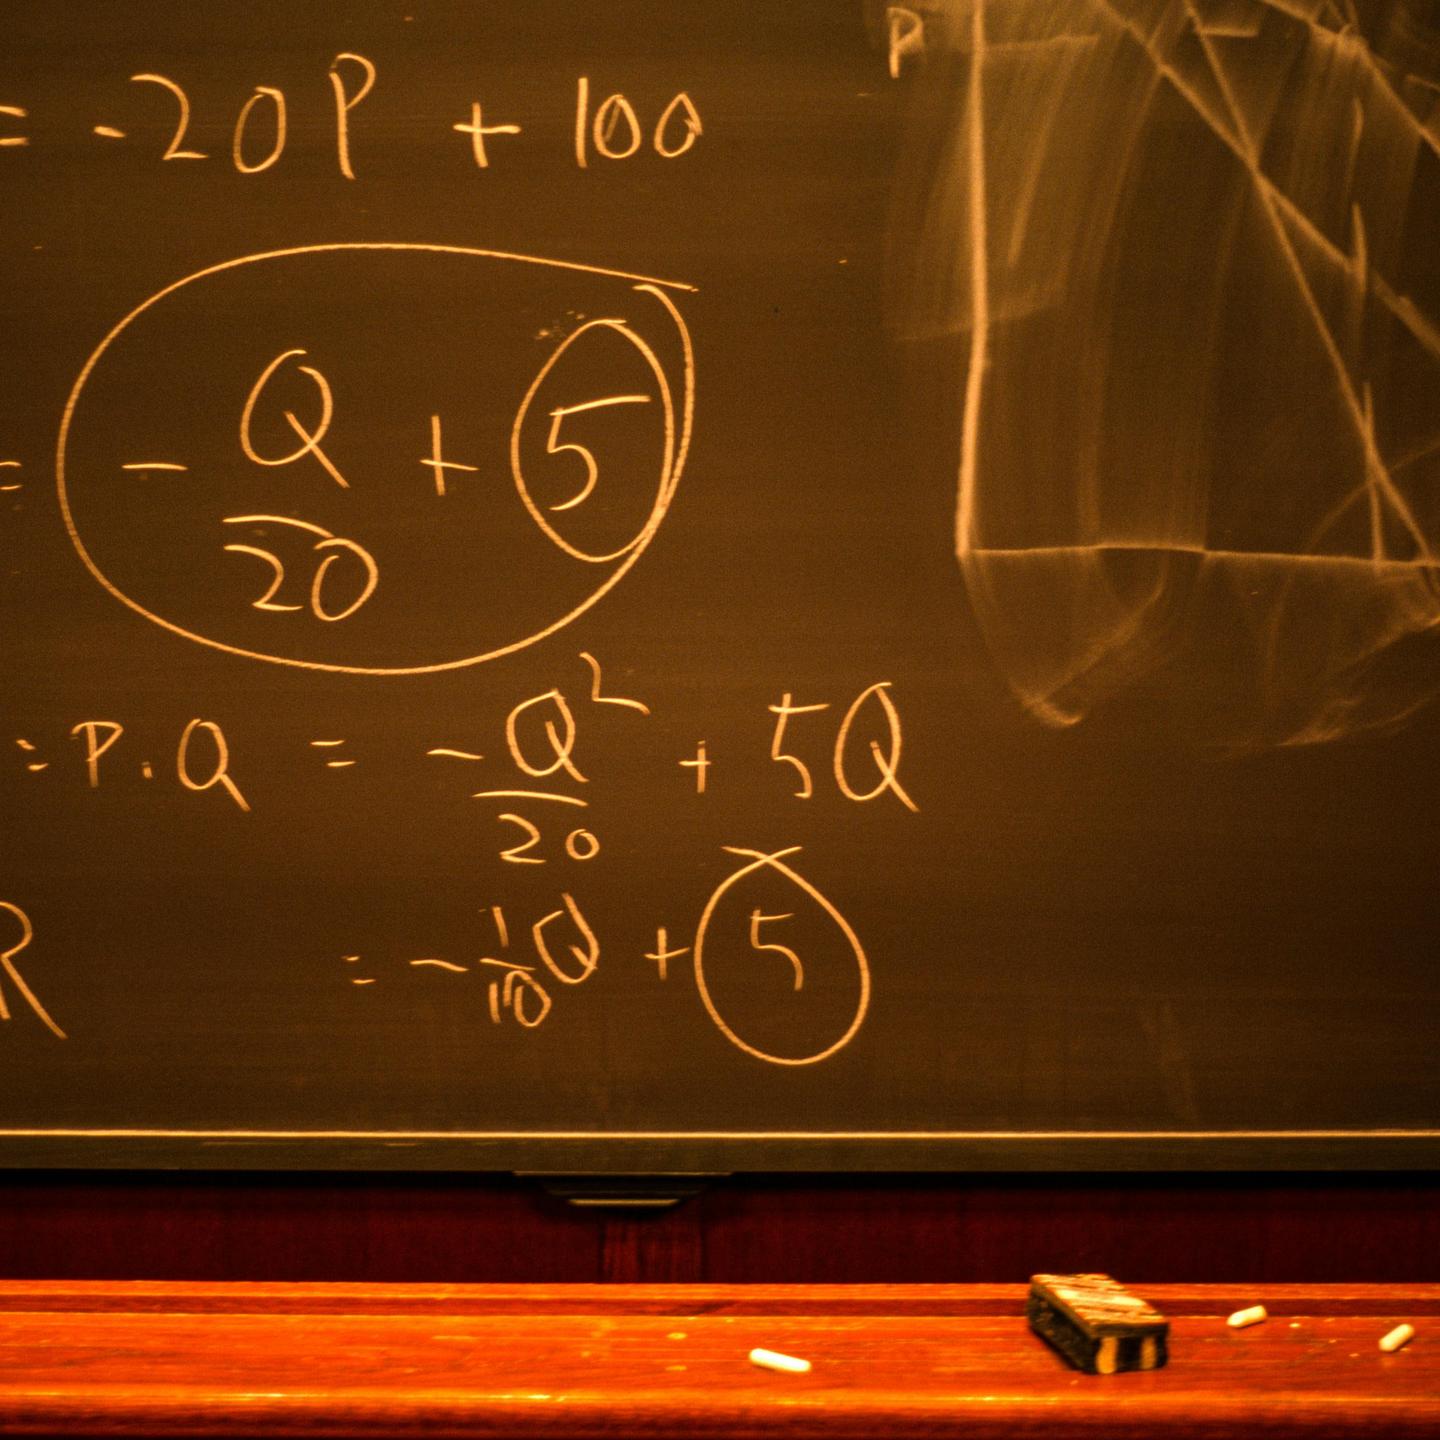 P
= -20P + 100
= - Q/20 + 5
: P.Q = - Q²/20 + 5Q
R = - 1/10 Q + 5